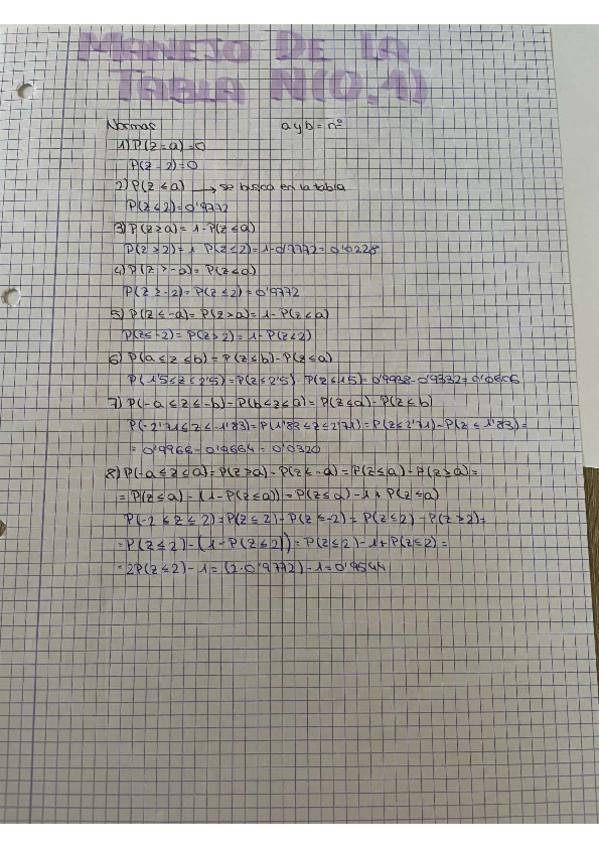 MANEJO DE LA
TABLA N(0,1)
Normas a y b = nº
1) P(z = a) = 0
P(z = 2) = 0
2) P(z ≤ a) → se busca en la tabla
P(z ≤ 2) = 0'9772
3) P(z ≥ a) = 1 - P(z ≤ a)
P(z ≥ 2) = 1 - P(z ≤ 2) = 1 - 0'9772 = 0'0228
4) P(z ≥ -a) = P(z ≤ a)
P(z ≥ -2) = P(z ≤ 2) = 0'9772
5) P(z ≤ -a) = P(z > a) = 1 - P(z ≤ a)
P(z ≤ -2) = P(z > 2) = 1 - P(z ≤ 2)
6) P(a ≤ z ≤ b) = P(z ≤ b) - P(z ≤ a)
P(1'5 ≤ z ≤ 2'5) = P(z ≤ 2'5) - P(z ≤ 1'5) = 0'9938 - 0'9332 = 0'0606
7) P(-a ≤ z ≤ -b) = P(b ≤ z ≤ a) = P(z ≤ a) - P(z ≤ b)
P(-2'71 ≤ z ≤ -1'83) = P(1'83 ≤ z ≤ 2'71) = P(z ≤ 2'71) - P(z ≤ 1'83) =
= 0'9966 - 0'9664 = 0'0320
8) P(-a ≤ z ≤ a) = P(z > a) - P(z ≤ -a) = P(z ≤ a) - P(z ≥ a) =
= P(z ≤ a) - (1 - P(z ≤ a)) = P(z ≤ a) - 1 + P(z ≤ a)
P(-2 ≤ z ≤ 2) = P(z ≤ 2) - P(z ≤ -2) = P(z ≤ 2) - P(z > 2) =
= P(z ≤ 2) - (1 - P(z ≤ 2)) = P(z ≤ 2) - 1 + P(z ≤ 2) =
= 2P(z ≤ 2) - 1 = (2 · 0'9772) - 1 = 0'9544